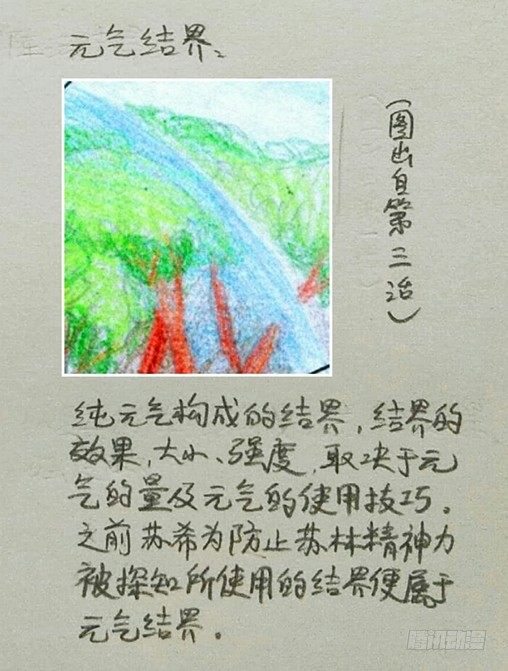 元气结界:
（图出自第三话）
纯元气构成的结界，结界的
效果、大小、强度，取决于元
气的量及元气的使用技巧。
之前苏希为防止苏林精神力
被探知所使用的结界便属于
元气结界。
腾讯动漫